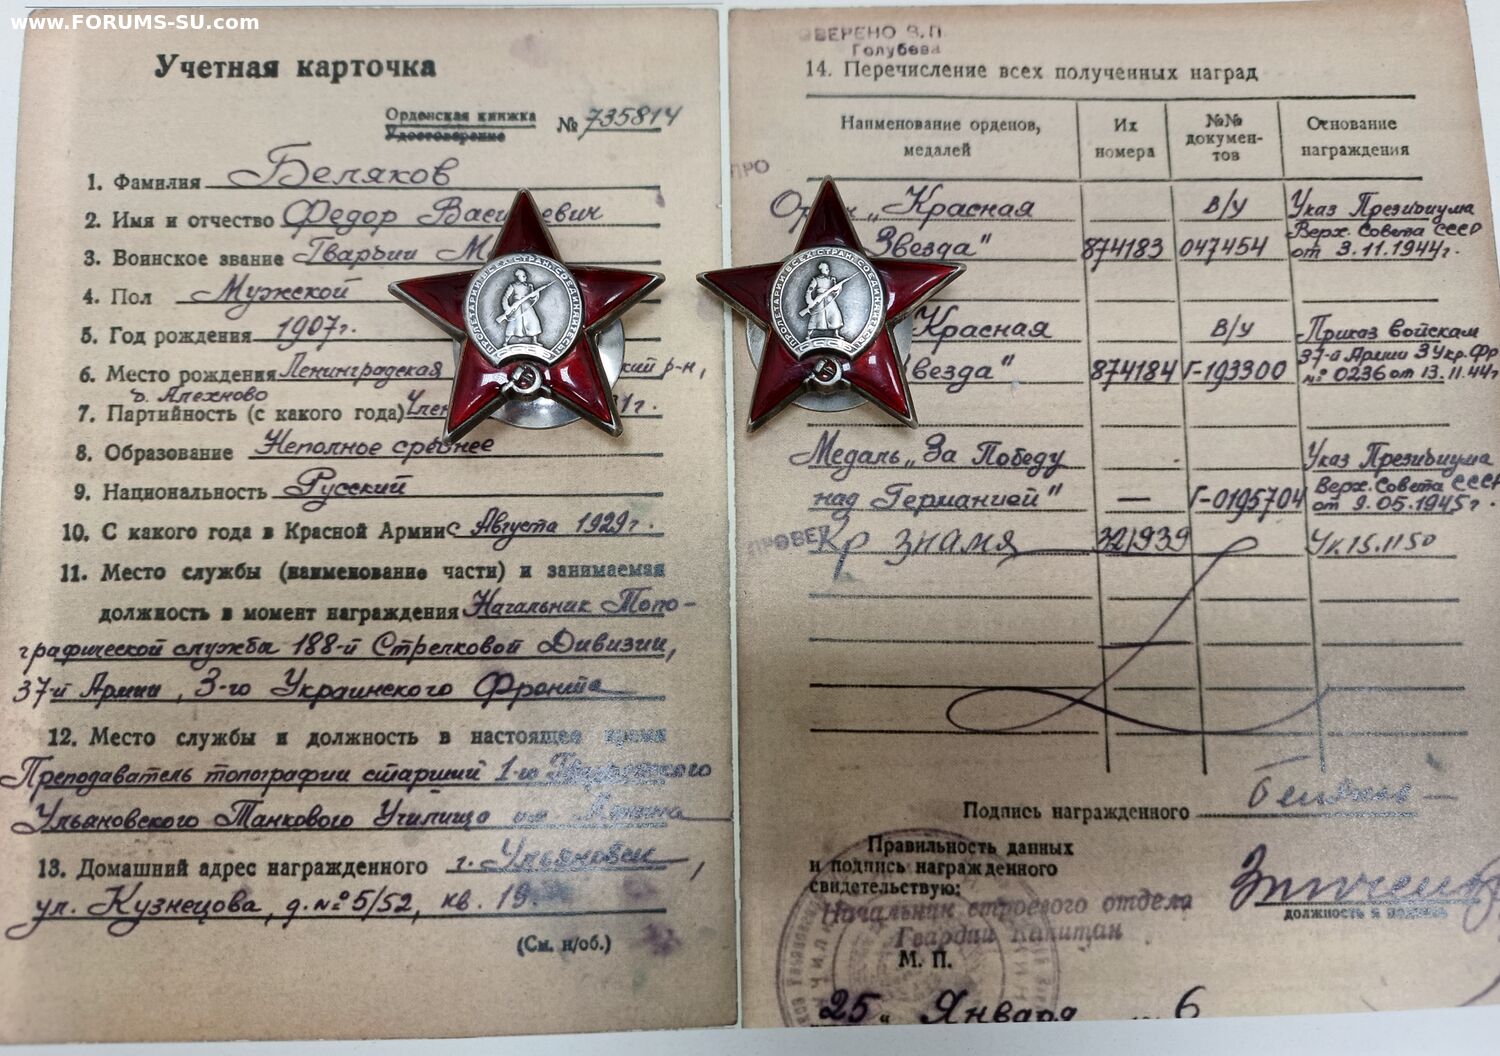 www.FORUMS-SU.com
Учетная карточка
Орденская книжка
Удостоверение
№ 735814
1. Фамилия Беляков
2. Имя и отчество Федор Васильевич
3. Воинское звание Гвардии М
4. Пол Мужской
5. Год рождения 1907г.
6. Место рождения Ленинградская кий р-н,
д. Алехново
7. Партийность (с какого года) Член 1г.
8. Образование Неполное среднее
9. Национальность Русский
10. С какого года в Красной Армии с Августа 1929г.
11. Место службы (наименование части) и занимаемая
должность в момент награждения Начальник Топо-
графической службы 188-й Стрелковой Дивизии,
37-й Армии, 3-го Украинского Фронта
12. Место службы и должность в настоящее время
Преподаватель топографии старший 1-го Гвардейского
Ульяновского Танкового Училища им. Ленина
13. Домашний адрес награжденного г. Ульяновск,
ул. Кузнецова, д. № 5/52, кв. 19.
(См. н/об.)
ОВЕРЕНО В.П.
Голубева
14. Перечисление всех полученных наград
Наименование орденов, медалей
Их номера
№№ докумен-тов
Основание награждения
ПРО
Ор н „Красная В/У Указ Президиума
Верх. Совета СССР
Звезда" 874183 047454 от 3.11.1944г.
Красная В/У Приказ войскам
37-й Армии 3 Укр. Фр
везда" 874184 Г-193300 № 0236 от 13.11.44г
Медаль „За Победу Указ Президиума
Верх. Совета СССР
над Германией" — Г-0195704 от 9.05.1945г.
ПРОВЕ
Кр знамя 321939 Ук 15.11 50
Подпись награжденного
Правильность данных
и подпись награжденного
свидетельствую:
должность и подпись
Начальник строевого отдела
Гвардии Капитан
М. П.
25 „ Января 6